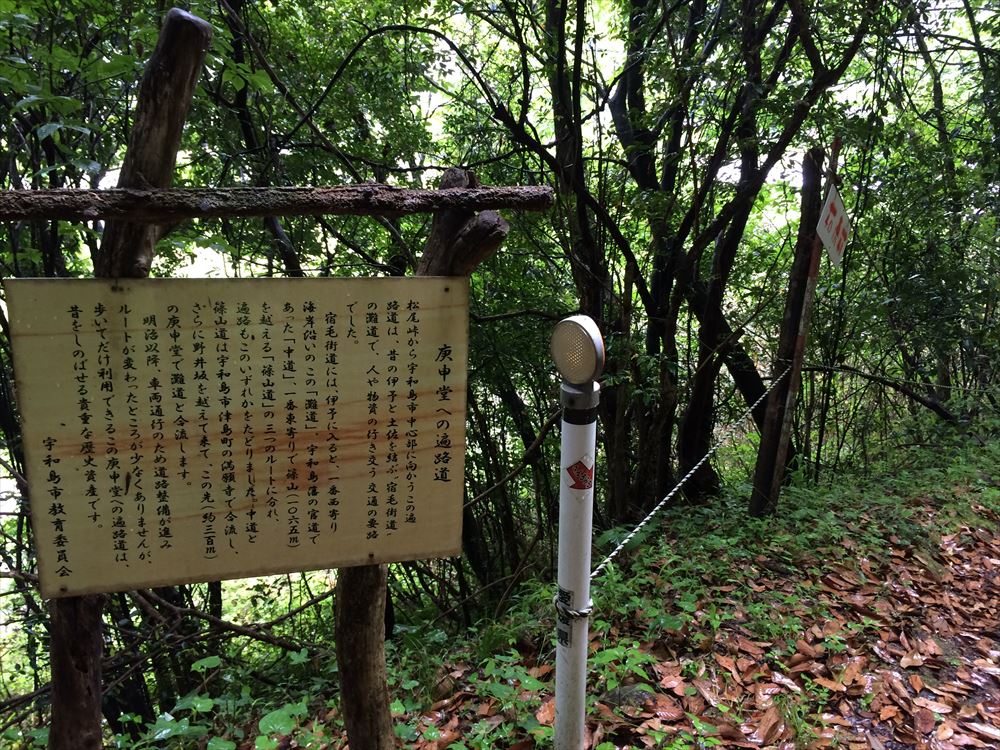 庚申堂への遍路道
松尾峠から宇和島市中心部に向かうこの遍
路道は、昔の伊予と土佐を結ぶ「宿毛街道」
の灘道で、人や物資の行き交う交通の要路
でした。
宿毛街道には伊予に入ると、一番西寄り
海岸沿いのこの「灘道」、宇和島藩の官道で
あった「中道」、一番東寄りで篠山（一〇六五m）
を越える「篠山道」の三つのルートに分れ、
遍路もこのいずれかをたどりました。中道と
篠山道は宇和島市津島町の満願寺で合流し、
さらに野井坂を越えて来て、この先（約三百m）
の庚申堂で灘道と合流します。
明治以降、車両通行のため道路整備が進み
ルートが変わったところが少なくありませんが、
歩いてだけ利用できるこの庚申堂への遍路道は、
昔をしのばせる貴重な歴史資産です。
宇和島市教育委員会